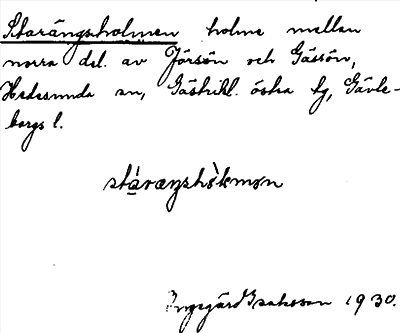 Starängsholmen holme mellan
norra del. av Jörsön och Gåssön,
Hedesunda sn, Gästrikl. östra tg, Gävle-
borgs l.
stárængshòlmən
Ingegärd Isaksson 1930.